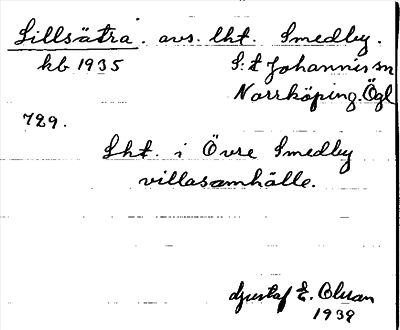 Lillsätra. avs. lht. Smedby.
kb 1935 S:t Johannis sn
Norrköping. Ögl
729.
Lht. i Övre Smedby
villasamhälle.
Gustaf E. Olsson
1938